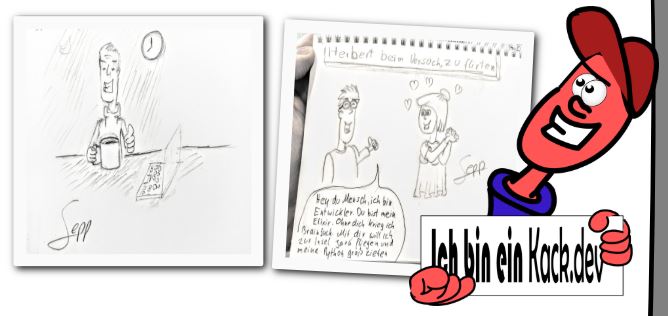 Sepp
Herbert beim Versuch, zu flirten
Sepp
Hey du Mensch, ich bin
Entwickler. Du bist mein
Elixir. Ohne dich krieg ich
Brainfuck. Mit dir will ich
zur Insel Java fliegen und
meine Python groß ziehen
Ich bin ein Kack.dev